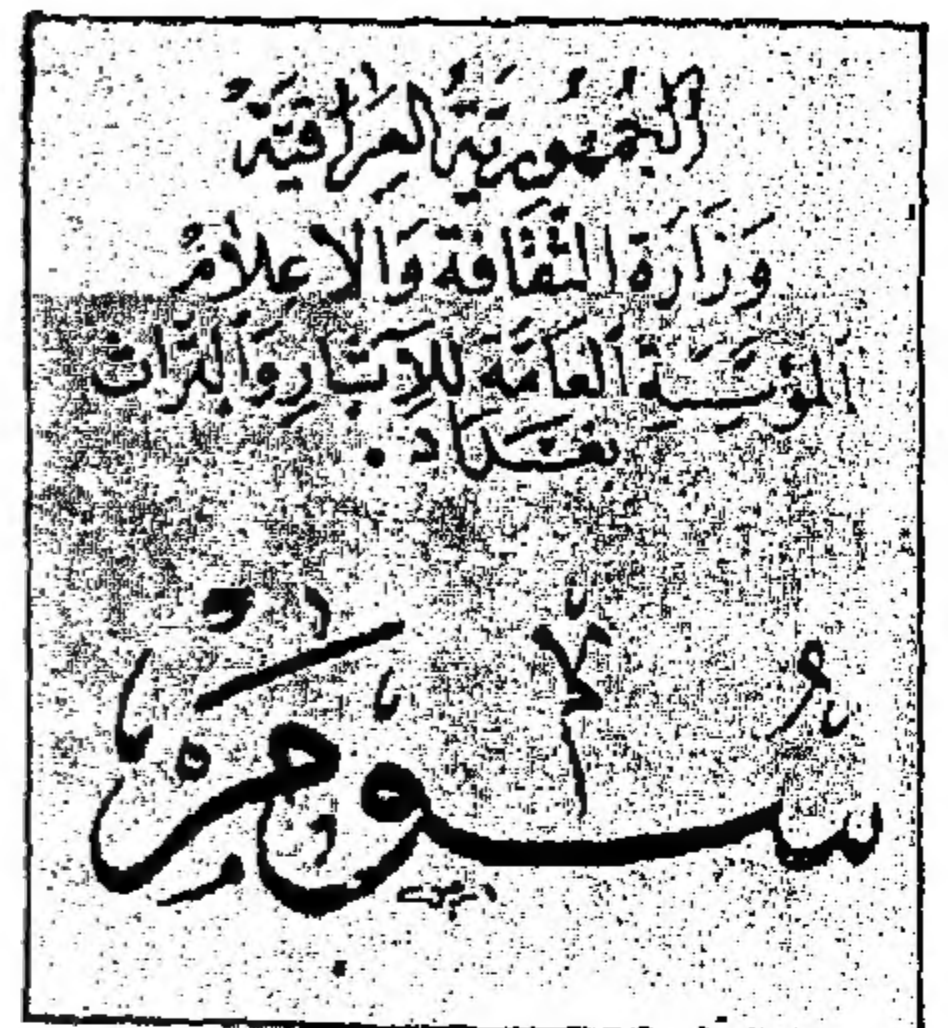 الجُمهُوريَّةُ العِرَاقيَّة
وَزَارَة الثَّقَافَة وَالاعِلامُ
المؤسَّسَةِ العَامَّة للآثارِ وَالتراث
بغداد
سُومَر